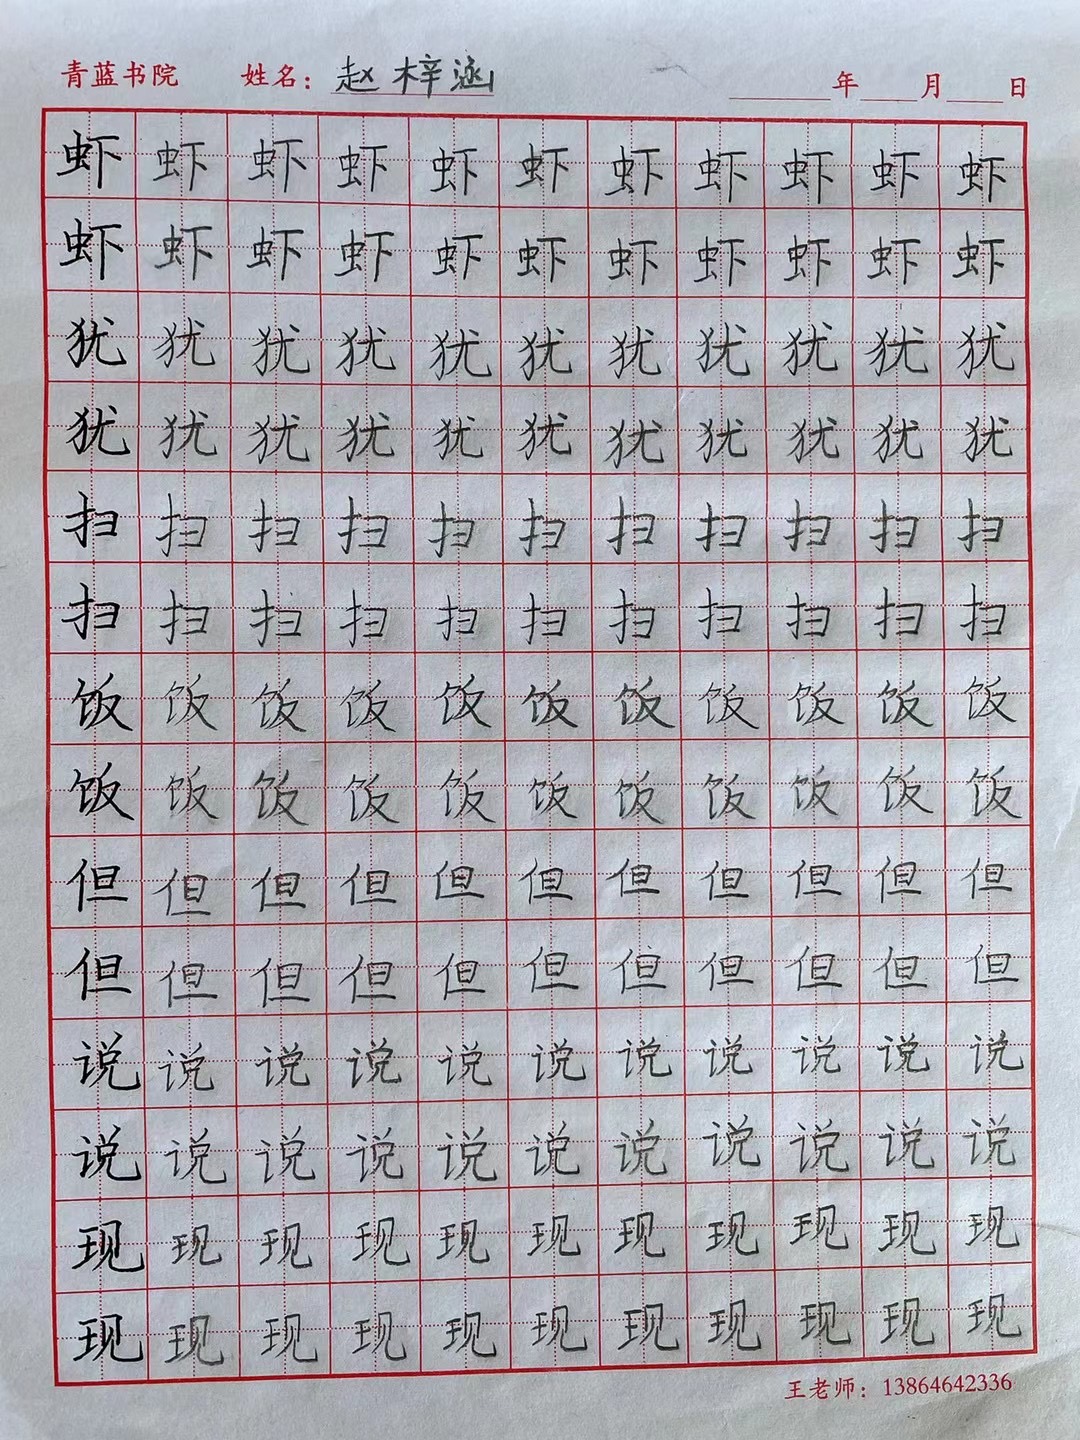 青蓝书院 姓名：赵梓涵 年 月 日
虾虾虾虾虾虾虾虾虾虾虾
虾虾虾虾虾虾虾虾虾虾虾
犹犹犹犹犹犹犹犹犹犹犹
犹犹犹犹犹犹犹犹犹犹犹
扫扫扫扫扫扫扫扫扫扫扫
扫扫扫扫扫扫扫扫扫扫扫
饭饭饭饭饭饭饭饭饭饭饭
饭饭饭饭饭饭饭饭饭饭饭
但但但但但但但但但但但
但但但但但但但但但但但
说说说说说说说说说说说
说说说说说说说说说说说
现现现现现现现现现现现
现现现现现现现现现现现
王老师：13864642336